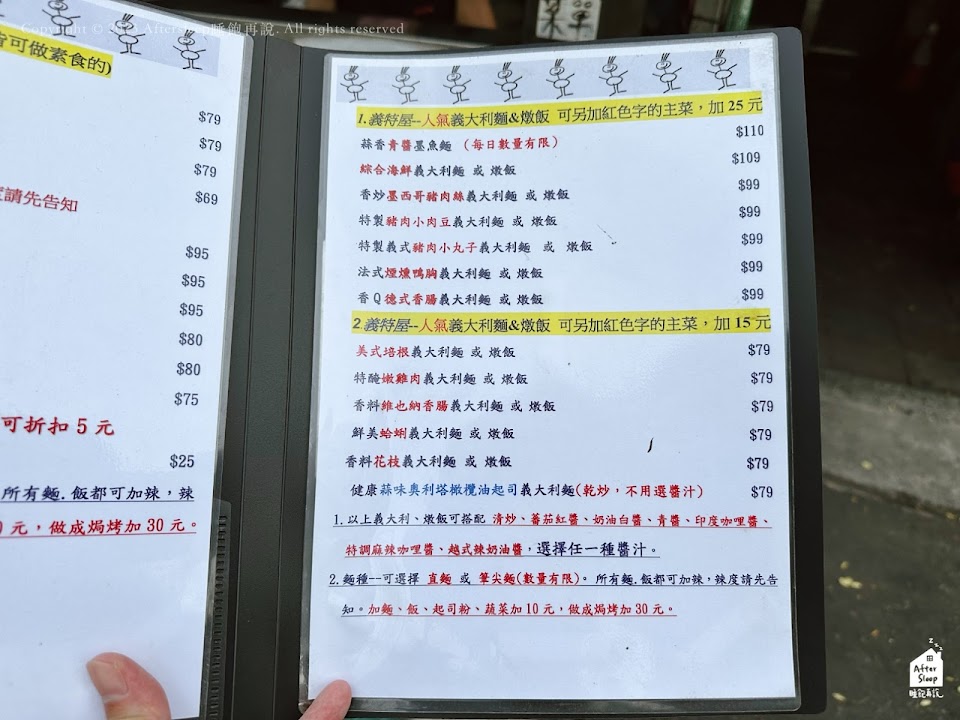 Copyright © Aftersleep睡飽再說. All rights reserved
菜單
皆可做素食的)
$79
$79
$79
$69
度請先告知
$95
$95
$95
$80
$80
$75
可折扣 5 元
$25
所有麵.飯都可加辣，辣
0 元，做成焗烤加 30 元。
1.義特屋--人氣義大利麵&燉飯 可另加紅色字的主菜，加 25 元
蒜香青醬墨魚麵 (每日數量有限) $110
綜合海鮮義大利麵 或 燉飯 $109
香炒墨西哥豬肉絲義大利麵 或 燉飯 $99
特製豬肉小肉豆義大利麵 或 燉飯 $99
特製義式豬肉小丸子義大利麵 或 燉飯 $99
法式煙燻鴨胸義大利麵 或 燉飯 $99
香Q德式香腸義大利麵 或 燉飯 $99
2.義特屋--人氣義大利麵&燉飯 可另加紅色字的主菜，加 15 元
美式培根義大利麵 或 燉飯 $79
特醃嫩雞肉義大利麵 或 燉飯 $79
香料維也納香腸義大利麵 或 燉飯 $79
鮮美蛤蜊義大利麵 或 燉飯 $79
香料花枝義大利麵 或 燉飯 $79
健康蒜味奧利塔橄欖油起司義大利麵(乾炒，不用選醬汁) $79
1.以上義大利、燉飯可搭配 清炒、蕃茄紅醬、奶油白醬、青醬、印度咖哩醬、
特調麻辣咖哩醬、越式辣奶油醬，選擇任一種醬汁。
2.麵種--可選擇 直麵 或 筆尖麵(數量有限)。所有麵.飯都可加辣，辣度請先告
知。加麵、飯、起司粉、蔬菜加 10 元，做成焗烤加 30 元。
After
Sleep
睡飽再說